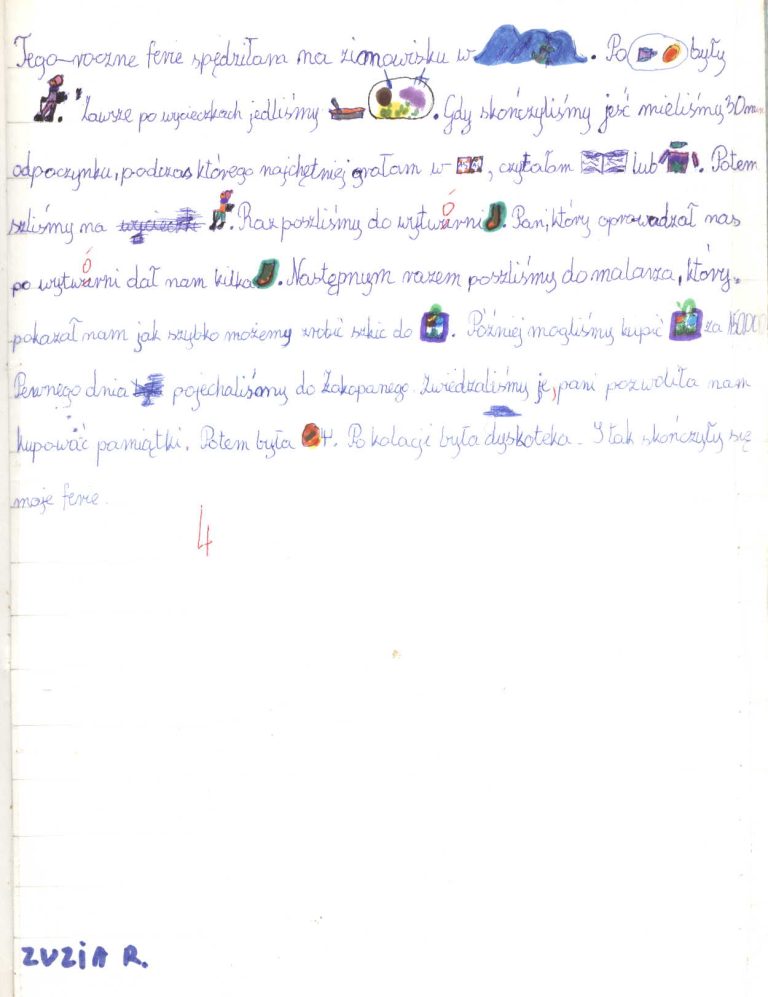 Tego-roczne ferie spędziłam na zimowisku w . Po były
. Zawsze po wycieczkach jedliśmy . Gdy skończyliśmy jeść mieliśmy 30 min
odpoczynku, podczas którego najchętniej grałam w , czytałam lub . Potem
szliśmy na . Raz poszliśmy do wytwarni . Pan, który oprowadzał nas
ó
po wytwarni dał nam kilka . Następnym razem poszliśmy do malarza, który
ó
pokazał nam jak szybko możemy zrobić szkic do . Później mogliśmy kupić za
Pewnego dnia pojechaliśmy do Zakopanego. Zwiedzaliśmy je, pani pozwoliła nam
kupować pamiątki. Potem była . Po kolacji była dyskoteka. I tak skończyły się
moje ferie.
4
ZUZIA R.